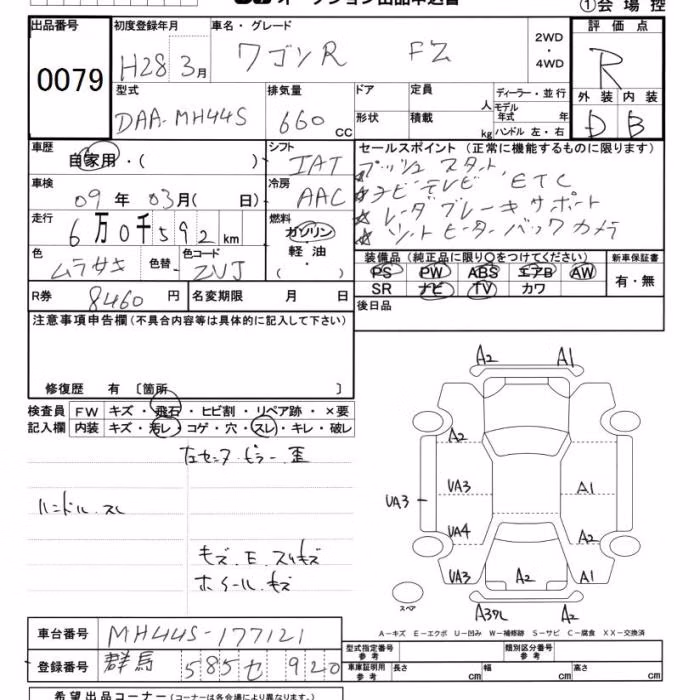 オークション出品申込書
①会場控
出品番号
0079
初度登録年月
H28 3月
車名・グレード
ワゴンR FZ
2WD
・
4WD
評価点
R
外装 内装
D B
型式
DAA-MH44S
排気量
660 CC
ドア
定員
人
形状
積載
kg
ディーラー・並行
モデル年式 年
ハンドル 左・右
車歴
自家用・( )
シフト
IAT
車検
09年03月( 日)
冷房
AAC
走行
6万0千592km
燃料
ガソリン
軽油
( )
色
ムラサキ
色替
色コード
ZVJ
セールスポイント(正常に機能するものに限ります)
☆プッシュスタート
☆ナビテレビ ETC
☆レーダブレーキサポート
☆シートヒーター バックカメラ
装備品(純正品に限り○をつけてください)
PS PW ABS エアB AW
SR ナビ TV カワ
新車保証書
有・無
R券 8460円
名変期限 月 日
後日品
注意事項申告欄(不具合内容等は具体的に記入して下さい)
修復歴 有〔箇所 〕
検査員記入欄
FW キズ・飛石・ヒビ割・リペア跡・×要
内装 キズ・汚レ・コゲ・穴・スレ・キレ・破レ
左センターピラー歪
ハンドル スレ
キズ.E.スリキズ
ホイール.キズ
A2 A1
A2
UA3 A1
UA3
UA4 A2
UA3 A2 A1
スペア
A3ワレ A2
A−キズ E−エクボ U−凹み W−補修跡 S−サビ C−腐食 XX−交換済
車台番号 MH44S-177121
登録番号 群馬 585 セ 920
型式指定番号 参考
類別区分番号 参考
車庫証明用 参考
長さ cm 幅 cm 高さ cm
希望出品コーナー(コーナーは各会場により異なります。)